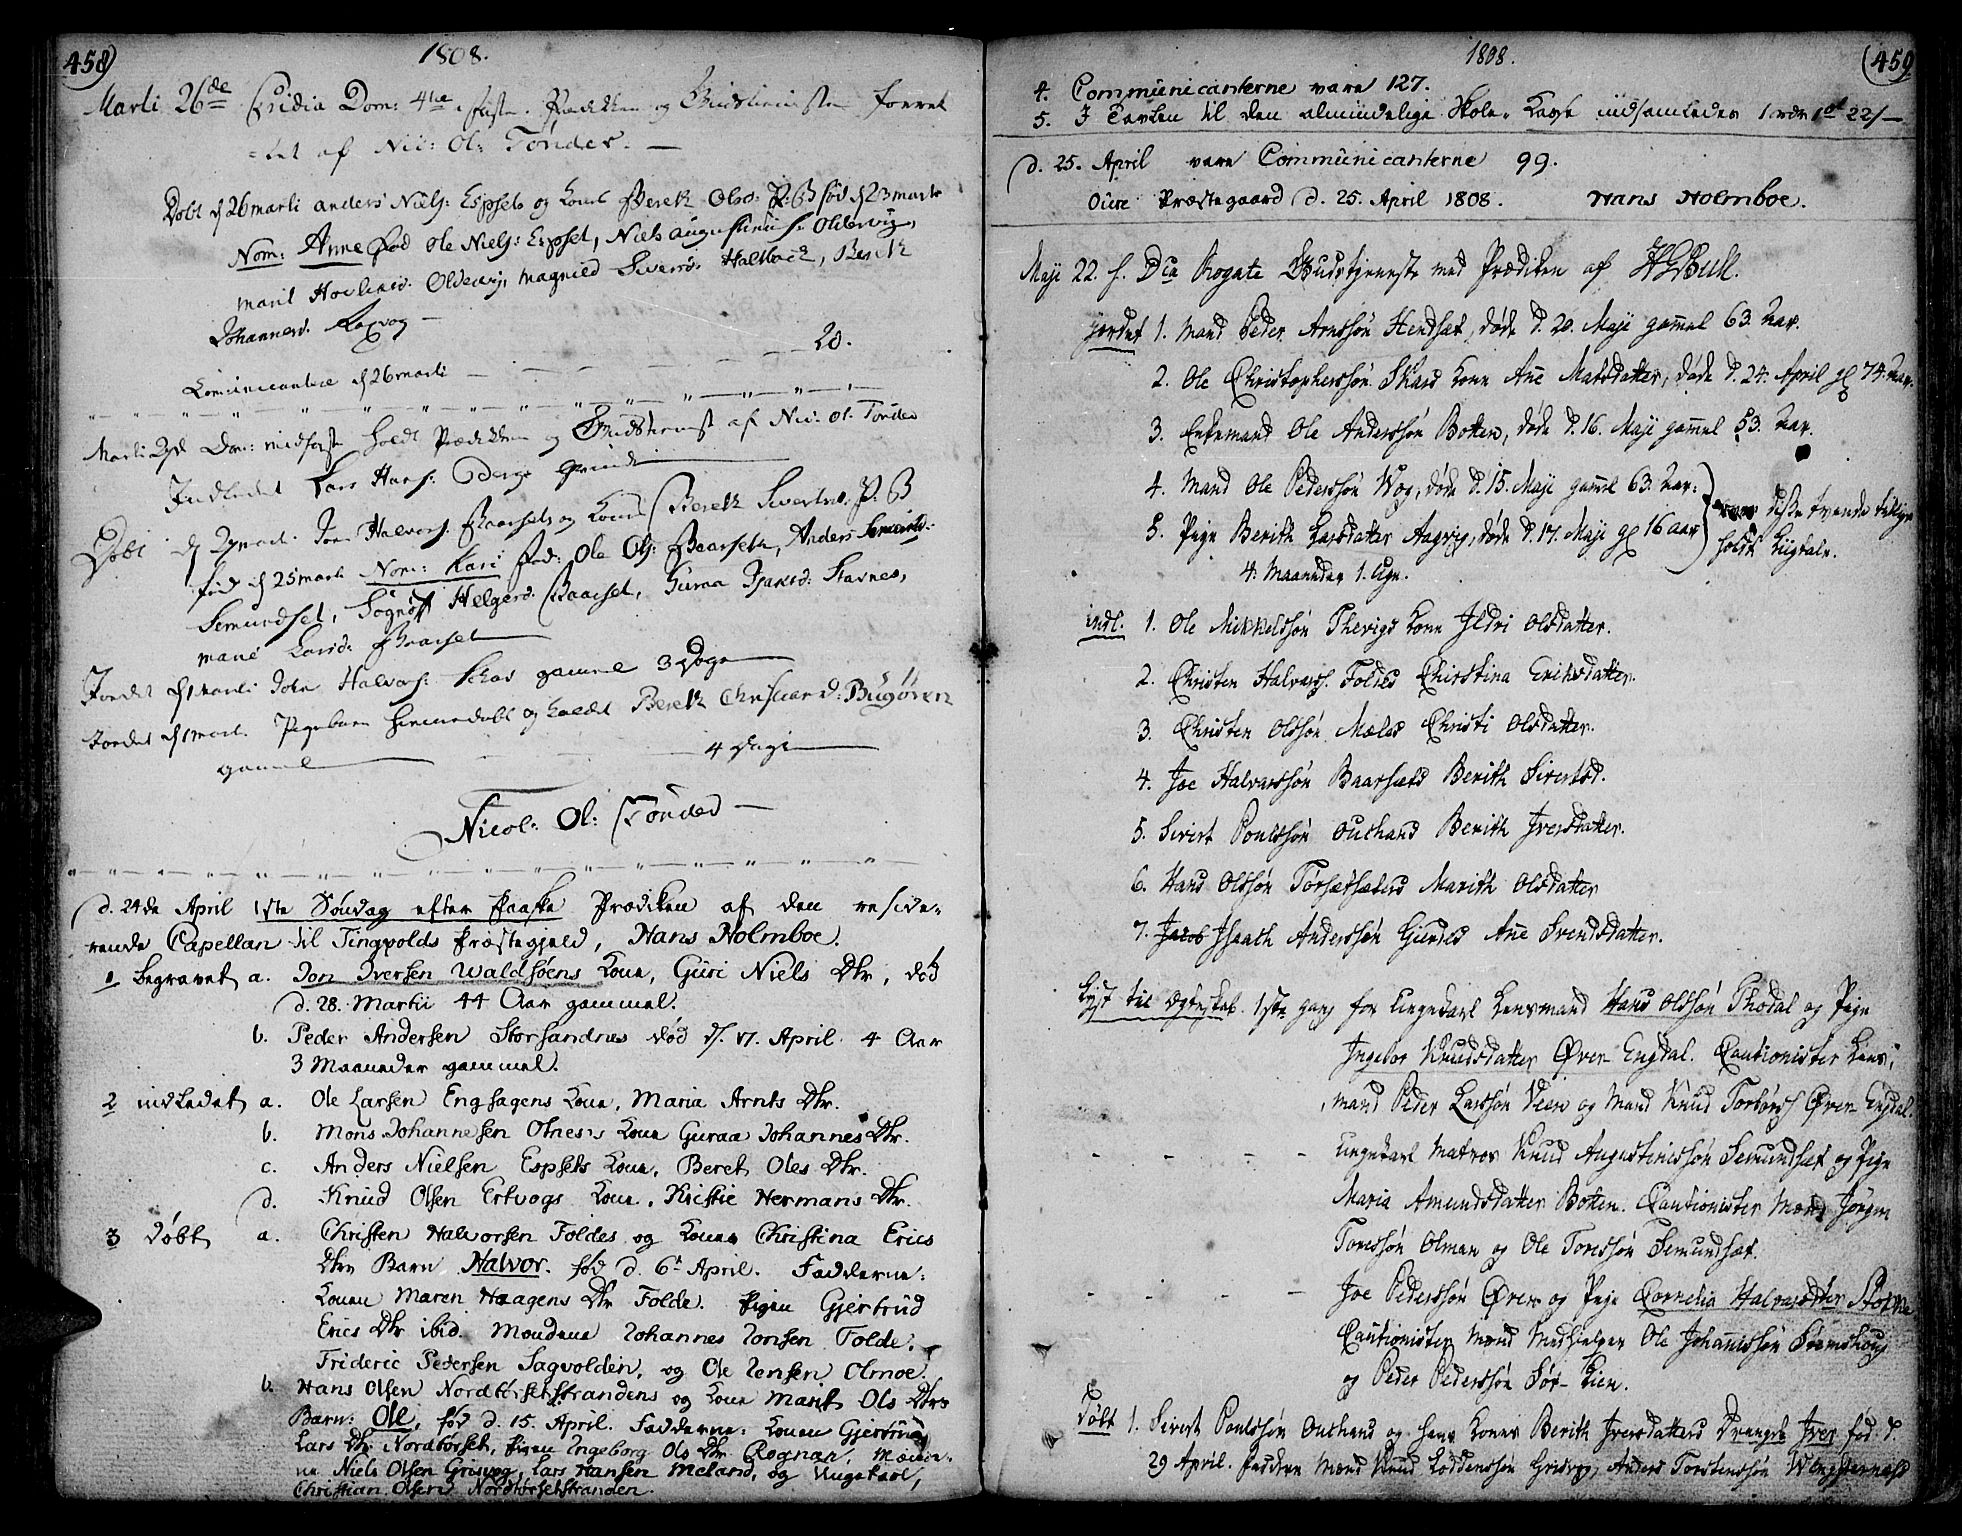 458
1808.
Marti 26de Fridia Dom: 4de Faste Prædikken og Gudstienisten forret
=tet af Nic: Ol: Tønder. —
Døbt d 26 marti anders Niels: Espset og Kone Bereth Olsd: P: B fød d 23 martii
Nom: Anne Fad Ole Niels: Espset, Niels augustinus: Oldervig,
marit Oldervig, magnild Siversd: Halsbach, Bereth
Johannesd. Roxvog —
Communicantere d 26 marti — — — — — 20.
Marti Dom: midfaste holdt Prædikken og Gudstienist af Nic: Ol: Tønder
Indledet Lars Hans: Qvinde
Døbt d marti Halvors: Baarset og Kone Bereth Sivertsd. P: B
fød d 25 marti Nom: Kari Fad: Ole Ols: Baarseth, Anders
Semundset, Helgesd: Baarset, Guraa Stavnes,
mane Larsd: Baarset
Jordet d marti John Halvors: gammel 3 Dage
Jordet d marti Pigebarn hiemmedøbt og kaldet Bereth Christiand: Bugøren
gammel — 4 Dage
Nicol: Ol: Tønder —
d. 24de April 1ste Søndag efter Paaske Prædiken af den reside=
rende Capellan til Tingvolds Præstegjeld, Hans Holmboe.
1 begravet a. Jon Iversen Waldsøens Kone, Guri Niels Dtr, død
d. 28. Martii 44 Aar gammel.
b. Peder Andersen Storsandnes død d. 17. April 4 Aar
3 Maaneder gammel.
2 indledet a. Ole Larsen Enghagens Kone, Maria Arnts Dtr.
b. Mons Johannesen Otnes's Kone Guraa Johannes Dtr.
c. Anders Nielsen Espsets Kone, Beret Oles Dtr.
d. Knud Olsen Ertvogs Kone, Kristie Hermans Dtr.
3 døbt a. Christen Halvorsen Foldes og Kones Christina Erics
Dtrs Barn Halvor. fød d. 6te April. Fadderne:
Konen Maren Haagens Dtr Folde. Pigen Gjertrud
Erics Dtr ibid. Mændene Johannes Jonsen Folde,
Frideric Pedersen Sagvolden, og Ole Jensen Olmoe.
b. Hans Olsen Nordtørsetstrandens og Kone Marit Ols Dtrs
Barn: Ole, fød d. 15. April. Fadderne: Konen Gjertrud
Lars Dtr Nordtørset, Pigen Ingeborg Ols Dtr Rognan, Mænde=
ne Niels Olsen Grisvog, Lars Hansen Meland, og Ungekarl,
Christian Olsen Nordtørsetstranden.
1808.
459
4. Communicanterne vare 127.
5. I Tavlen til den almindelige Skole-Kasse indsamledes 1 22/—
d. 25. April vare Communicanterne 99.
Øure Præstegaard d. 25. April 1808. Hans Holmboe.
Maji 22. h. Dca Rogate Gudstjeneste med Prædiken af HGBull.
jordet 1. Mand Peder Arnssøn Hendset, døde d. 20. Maji gammel 63. Aar.
2. Ole Christophersøn Skars Kone Ane Matsdatter, døde d. 24. April gl 74. Aar.
3. Enkemand Ole Anderssøn Botten, døde d. 16. Maji gammel 53. Aar.
4. Mand Ole Pedersøn Wog, døde d. 15. Maji gamml 63. Aar.
5. Pige Berith Larsdatter Aagvig, døde d. 17. Maji gl 16 aar
4. Maaneder 1. Uge.
over disse tvende
holdt Liigtale.
indl: 1. Ole Mikkelssøn Thevigs Kone Ildri Olsdatter.
2. Christen Halvors. Foldes Christina Erichsdatter.
3. Christen Olssøn Mæles Christi Olsdatter.
4. Joe Halvorssøn Baarsæts Berith Sivertsd.
5. Sivert Poulssøn Outhaus Berith Iversdatter.
6. Hans Olssøn Tørsetsæters Marith Olsdatter
7. Jacob Isaach Anderssøn Gjerdes Ane Svendsdatter.
Lyst til Ægteskab. 1ste gang for Ungekarl Lensmand Hans Olssøn Thodal og Pige
Ingebor Knudsdatter Øver Engdal. Cautionister Lens=
mand Peder Larssøn Veen og Mand Knud Øver-Engdal.
- - - - Ungekarl Matros Knud Augustinussøn Semundset og Pige
Maria Amundsdatter Botten. Cautionister Mænd Jørgen
Toressøn Olman og Ole Toressøn Semundset.
- - - - Joe Pederssøn Øver og Pige Cornelia Halvorsdatter
Cautionister Mænd Medhjelper Ole Johanissøn Stemshoug
og Peder Pederssøn Sør-Lien.
Døbt 1. Sivert Poulssøn Outhaus og hans Kones Berith Iversdatters Drengeb. Iver fød d.
29 April. Faddere Mænd Knud Grisvog, Anders Torstenssøn